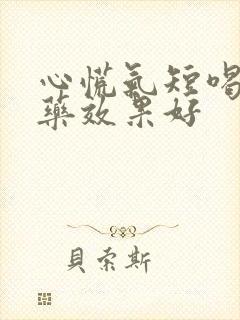 心慌氣短喝
藥效果好
貝索斯